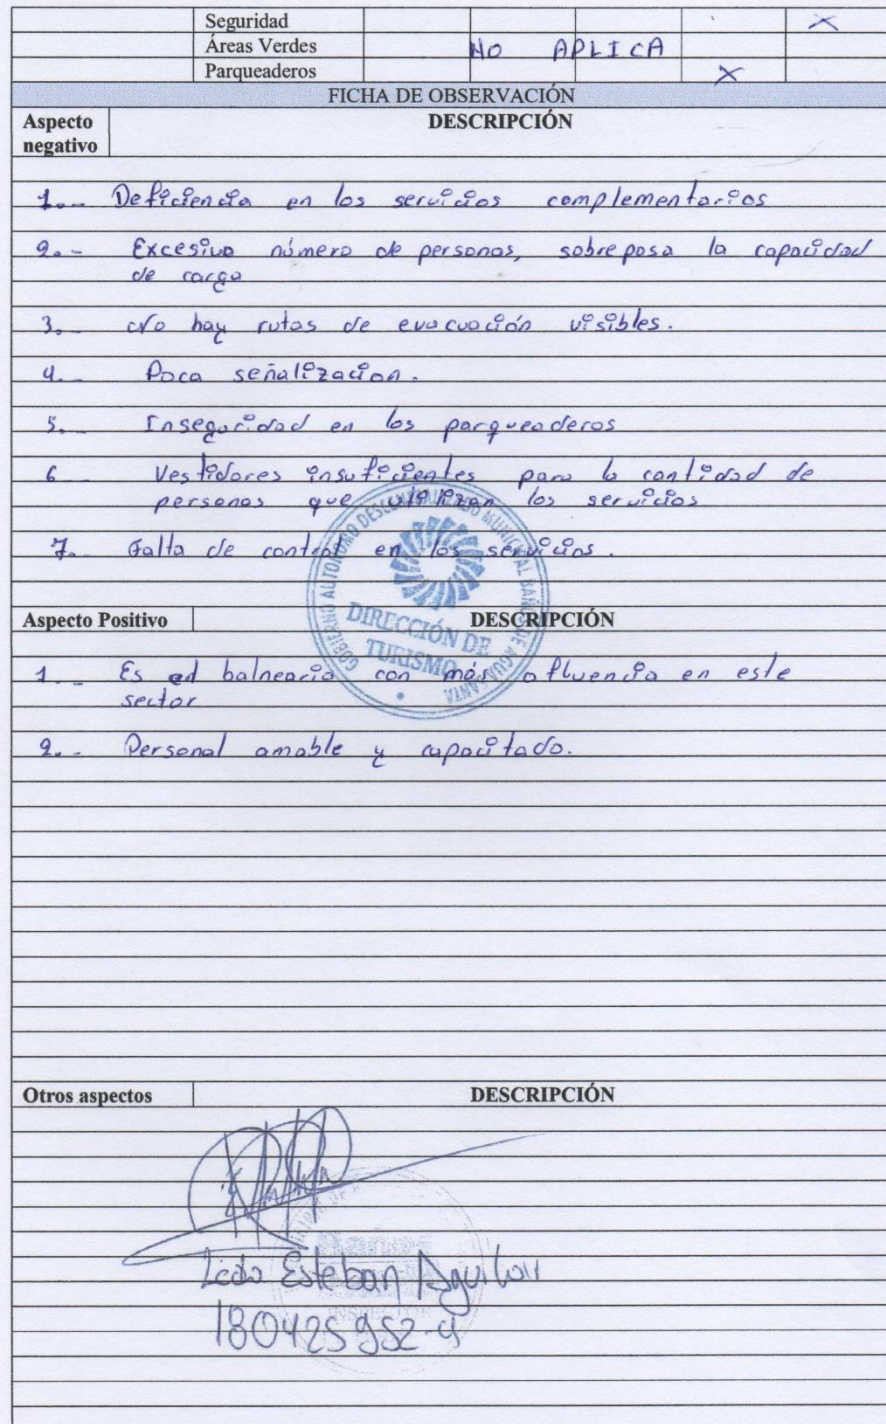 Seguridad X
Áreas Verdes NO APLICA
Parqueaderos X
FICHA DE OBSERVACIÓN
Aspecto negativo DESCRIPCIÓN
1.- Deficiencia en los servicios complementarios
2.- Excesivo número de personas, sobrepasa la capacidad
de carga
3.- No hay rutas de evacuación visibles.
4.- Poca señalizacion.
5.- Inseguridad en los parqueaderos
6.- Vestidores insuficientes para la cantidad de
personas que utilizan los servicios
7.- Falta de control en los servicios.
GOBIERNO AUTÓNOMO DESCENTRALIZADO MUNICIPAL BAÑOS DE AGUA SANTA
DIRECCIÓN DE
TURISMO
Aspecto Positivo DESCRIPCIÓN
1.- Es el balneario con más afluencia en este
sector
2.- Personal amable y capacitado.
Otros aspectos DESCRIPCIÓN
Baños
Lcdo Esteban Aguilar
INSPECTOR
180425952-9